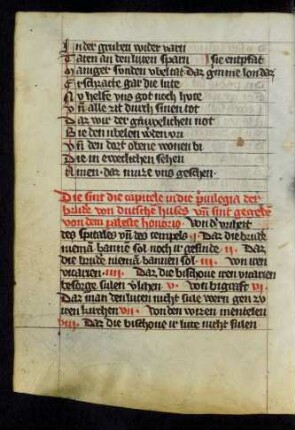 In der gruben wider varn
Taten an den luten sparn Sie entpfat
Maniger sunden vbeltat daz grimme lon dar
Erschracte gar die lute
Nv helfe vns got noch hvte
Vn̄ alle zit durch sinen tot
Daz wir der not
Bie den vbelen
Vn̄ den dort obene wonen bi
Die in ewerlichen sehen
Amen daz mvze vns geschen
Die sint die capitele in die p̄uilegia der
brude von dutsche huses vn̄ sint gegebē
von dem pabeste honorio Von d' vriheit
des spitales vn̄ des tempels I Daz die brude
niemā banne sol noch ir gesinde II Daz
die brude niemā bannen sol III Von iren
vicarien IIII Daz die bischoue iren vicarien
besorge sulen v̄lihen V Von bigraft VI
Daz man den luten nicht sule wern gen zv
iren kirchen VII Von den wizen mentelen
VIII Daz die bischoue ir lute nicht sulen